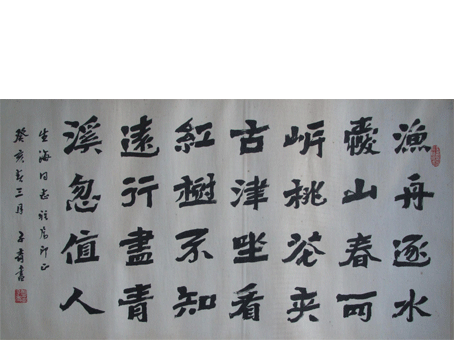 漁舟逐水
愛山春兩
岸桃花夾
古津坐看
紅樹不知
遠行盡青
溪忽值人
生海同志
癸亥春三月